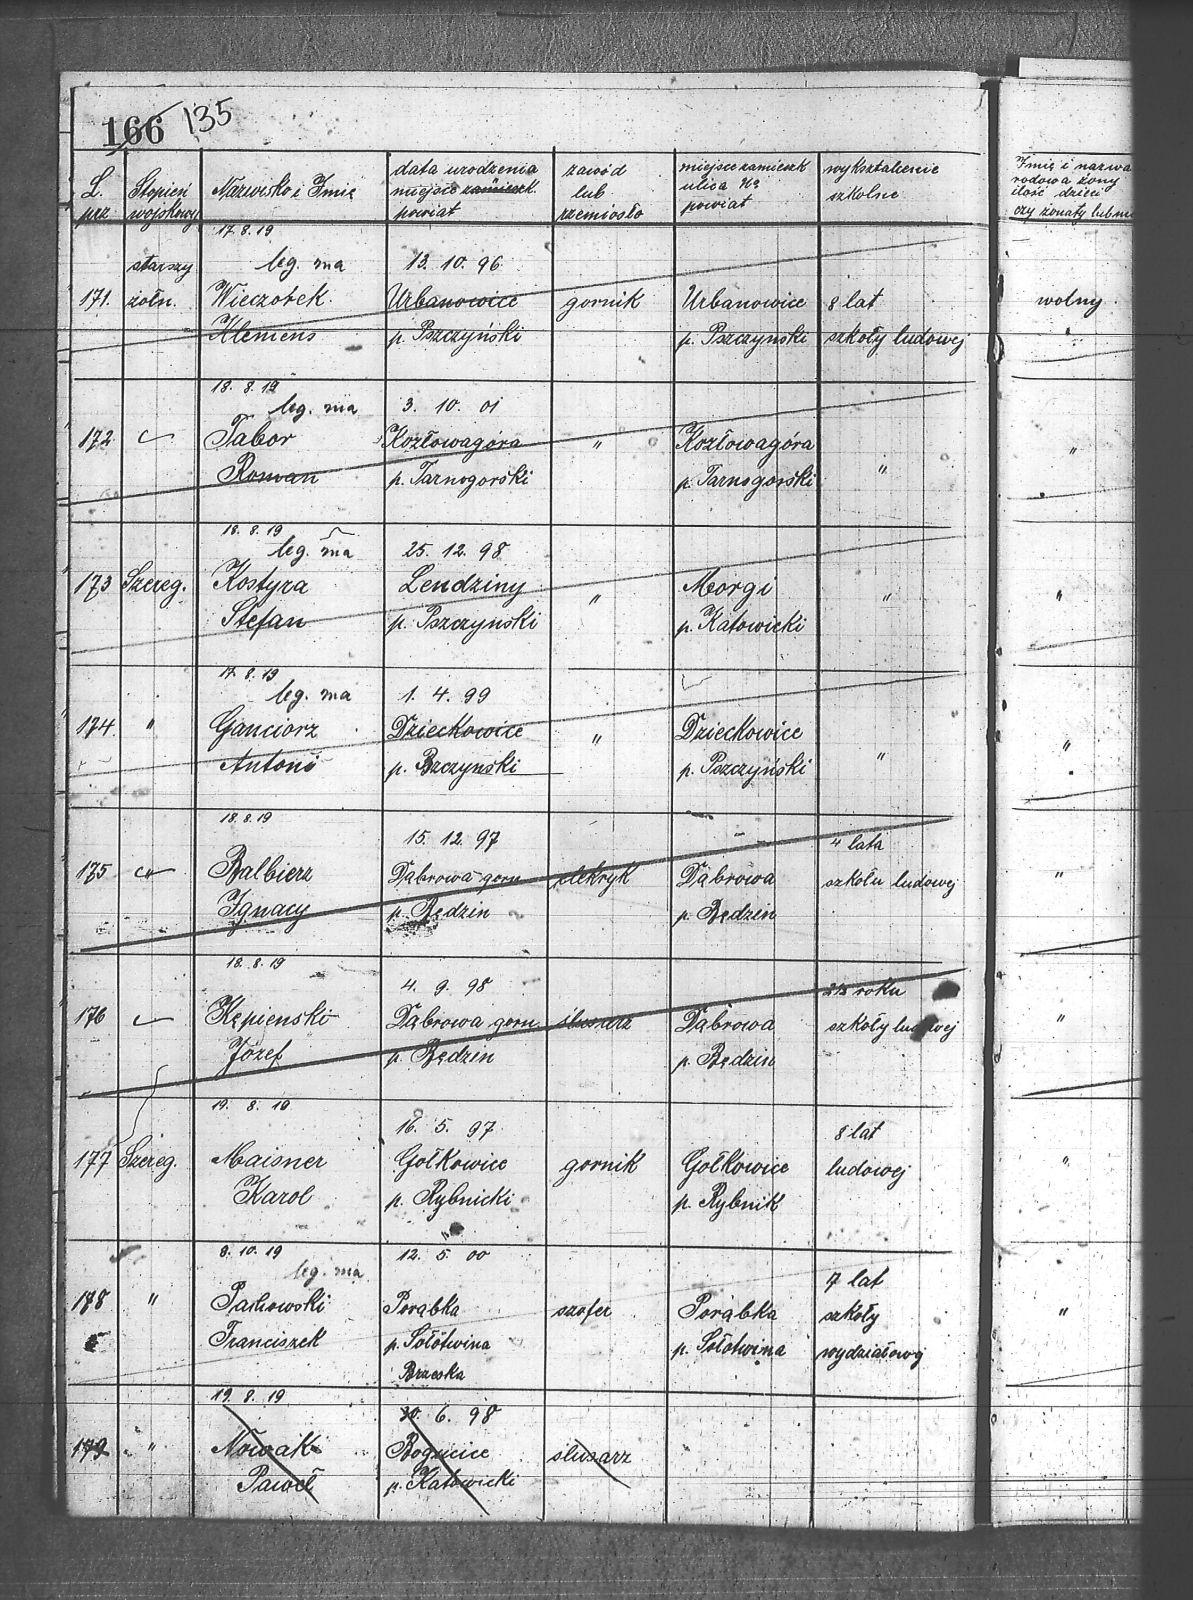 166 135
L. prz
Stopień wojskowy
Nazwisko i Imię
data urodzenia miejsce zamieszk. powiat
zawód lub rzemiosło
miejsce zamieszk ulica No powiat
wykształcenie szkolne
Imię i nazwa rodowa żony ilość dzieci czy żonaty lub
17. 8. 19
starszy leg. ma 13. 10. 96
171. żołn. Wieczorek Urbanowice gornik Urbanowice 8 lat wolny
Klemens p. Pszczyński p. Pszczyński szkoły ludowej
18. 8. 19
leg. ma 3. 10. 01
172 Tabor Kozłowagóra " Kozłowagóra "
Roman p. Tarnogorski p. Tarnogorski "
18. 8. 19
leg. ma 25. 12. 98
173 Szereg. Kostyra Lendziny " Morgi " "
Stefan p. Pszczynski p. Katowicki
17. 8. 19
leg. ma 1. 4. 99
174. " Ganciorz Dzieckowice " Dzieckowice "
Antoni p. Pszczynski p. Pszczyński "
18. 8. 19
15. 12. 97 4 lata
175 Balbierz Dąbrowa gorn elekryk Dąbrowa szkołu ludowej "
Ignacy p. Będzin p. Będzin
18. 8. 19
4. 9. 98 roku
176 Kępienski Dąbrowa gorn ślusarz Dąbrowa szkoły ludowej "
Józef p. Będzin p. Będzin
19. 8. 19
16. 5. 97 8 lat
177 Szereg. Maisner Gołkowice gornik Gołkowice ludowej "
Karol p. Rybnicki p. Rybnik
8. 10. 19 12. 5. 00
leg. ma 7 lat
178 " Porąbka szofer Porąbka szkoły "
Franciszek p. Sołótwina p. Sołotwina wydziałowy
Brzeska
19. 8. 19
30. 6. 98
179 " Nowak Bogucice ślusarz
Paweł p. Katowicki